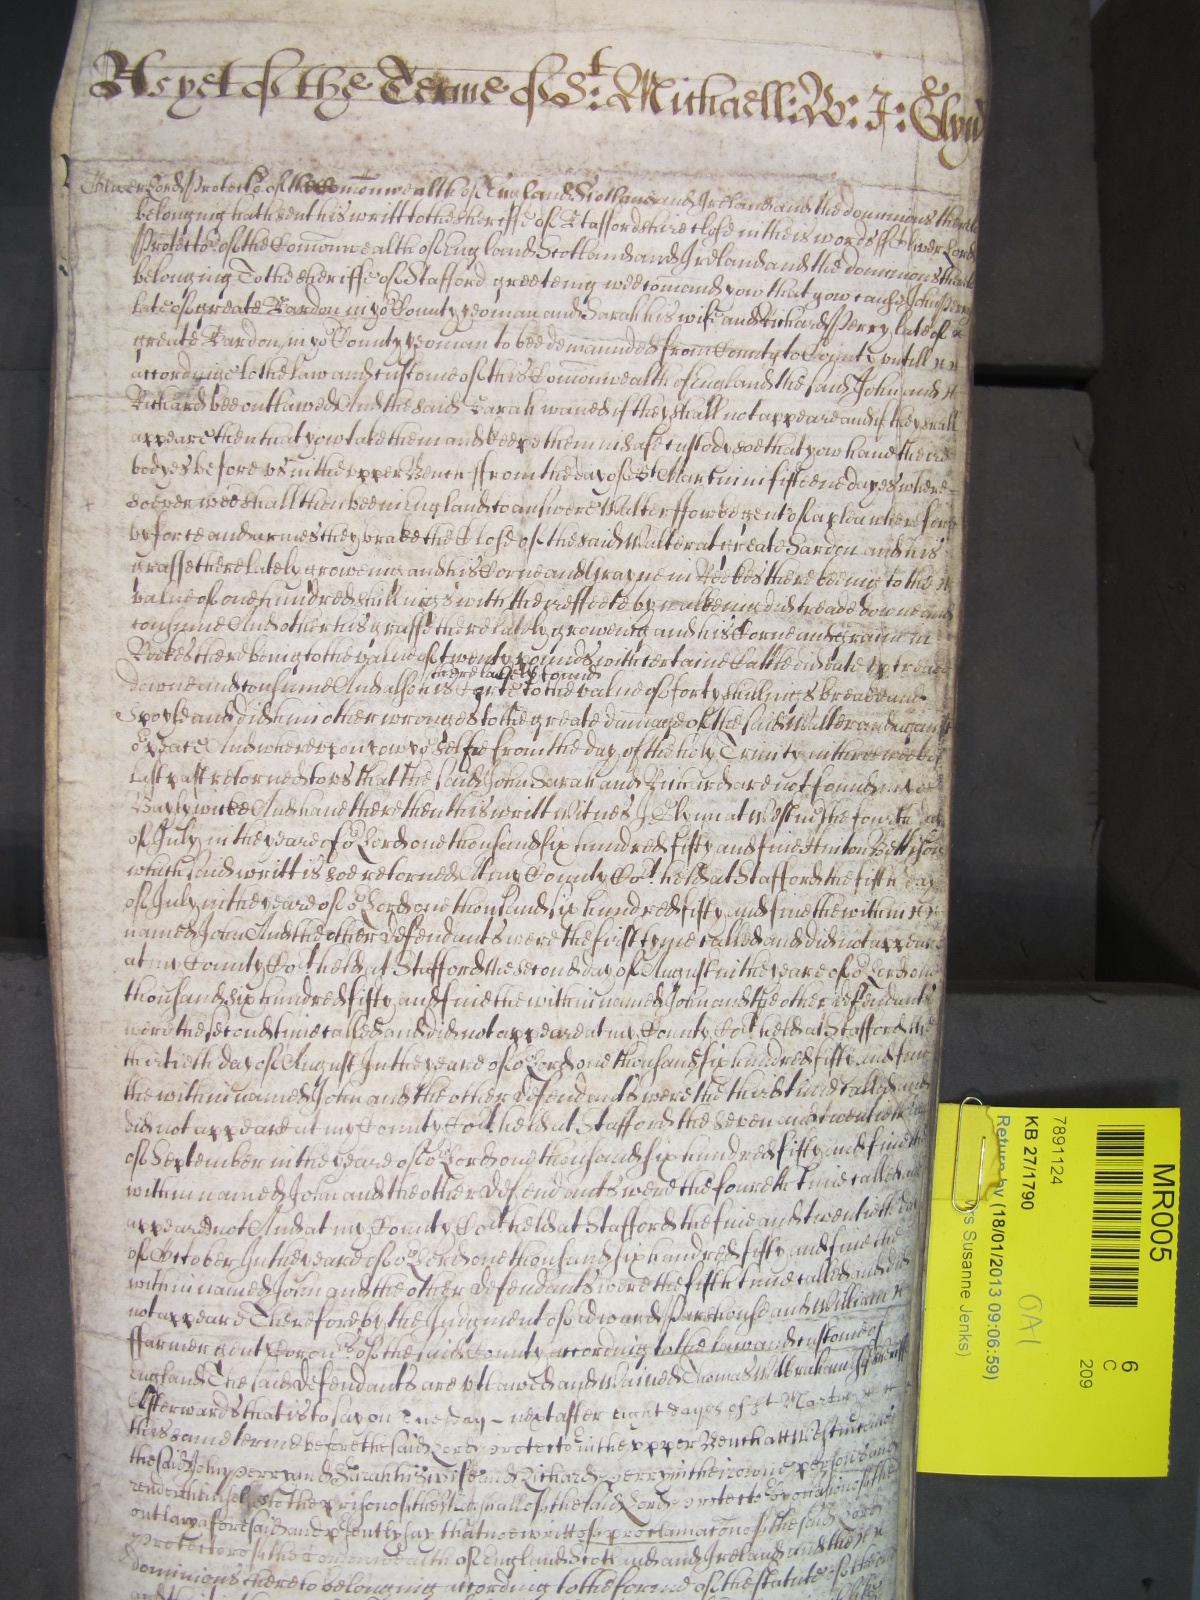 As yet of the Terme of St: Michaell: W: J: Glyn
Oliver Lord Protector of the Comonwealth of England Scotland and Ireland and the dominions thereto
belonging hath sent his writt to the sheriffe of Staffordshire close in theis words ss Oliver Lord
Protector of the Comonwealth of England Scotland and Ireland and the dominions thereto
belonging To the sheriffe of Stafford greeteing wee comand yow that yow cause John Perry
late of greate Bardon in yor County yeoman and Sarah his wife and Richard Perry late of
greate Bardon in yor County yeoman to bee demaunded from County to County untill
according to the law and custome of this Comonwealth of England the said John and
Richard bee outlawed And the said Sarah waved if they shall not appeare and if they shall
appeare then that yow take them and keepe them in safe custody soe that yow have theire
bodyes before us in the upper Bench from the day of St Martin in fifteene dayes where
soever wee shall then bee in England to answere Walter ffowke gent of a plea wherefore
by force and armes they brake the Close of the said Walter at greate Bardon and his
grasse there lately groweing and his Corne and Grayne in Reekes there being to the
value of one hundred shillings with theire feete by walkeing did treade downe and
consume And other his grasse there lately groweing and his Corne and graine in
Reekes there being to the value of twenty pounds with certaine Cattle did eate up treade
there lately found
downe and consume And also his to the value of forty shillings breake and
spoyle and did him other wronges to the greate damage of the said Walter and against
or peace And whereupon yow yor selfe from the day of the holy Trinity in three weekes
last past returned to us that the said John Sarah and Richard are not found in yor
Baylywicke And have there then this writt Witnes J Glynn at Westmr the fourth day
of July in the yeare of or Lord one thousand six hundred fifty and five
which said writt is soe retorned At my County Cort held at Stafford the fifth day
of July in the yeare of or Lord one thousand six hundred fifty and five the within
named John And the other Defendants were the first tyme called and did not appeare
at my County Cort held at Stafford the second day of August in the yeare of or Lord one
thousand six hundred fifty and five the within named John and the other defendants
were the second time called and did not appeare at my County Cort held at Stafford the
thirtieth day of August In the yeare of or Lord one thousand six hundred fifty and five
the within named John and the other Defendants were the third time called and
did not appeare at my County Cort held at Stafford the seven and twentieth day
of September in the yeare of or Lord one thousand six hundred fifty and five the
within named John and the other Defendants were the fourth time called and
appeared not And at my County Cort held at Stafford the five and twentieth day
of October In the yeare of or Lord one thousand six hundred fifty and five the
within named John and the other Defendants were the fifth time called and did
not appeare Therefore by the Judgment of Edward Parkhouse and William
ffarmer gent Coronrs of the said County according to the law and custome of
England The said Defendants are utlawed and Waived Thomas Wilbraham Sheriffe
Afterwards that is to say on Tuesday next after eight dayes of St Martin
this same terme before the said Lord Protector in the upper Bench att Westminster
the said John Perry and Sarah his wife and Richard Perry in theire owne persons and
render themselves to the prison of the Marshall of the said Lord Protector
outlary aforesaid and presently say that noe writt of proclamacon of the said Lord
Protector of the Comonwealth of England Scotland and Ireland and the
dominions thereto belonging according to the forme of the statute
MR005
6
C
209
7891124
KB 27/1790
Return by (18/01/2013 09:06:59)
Mrs Susanne Jenks)
OA1